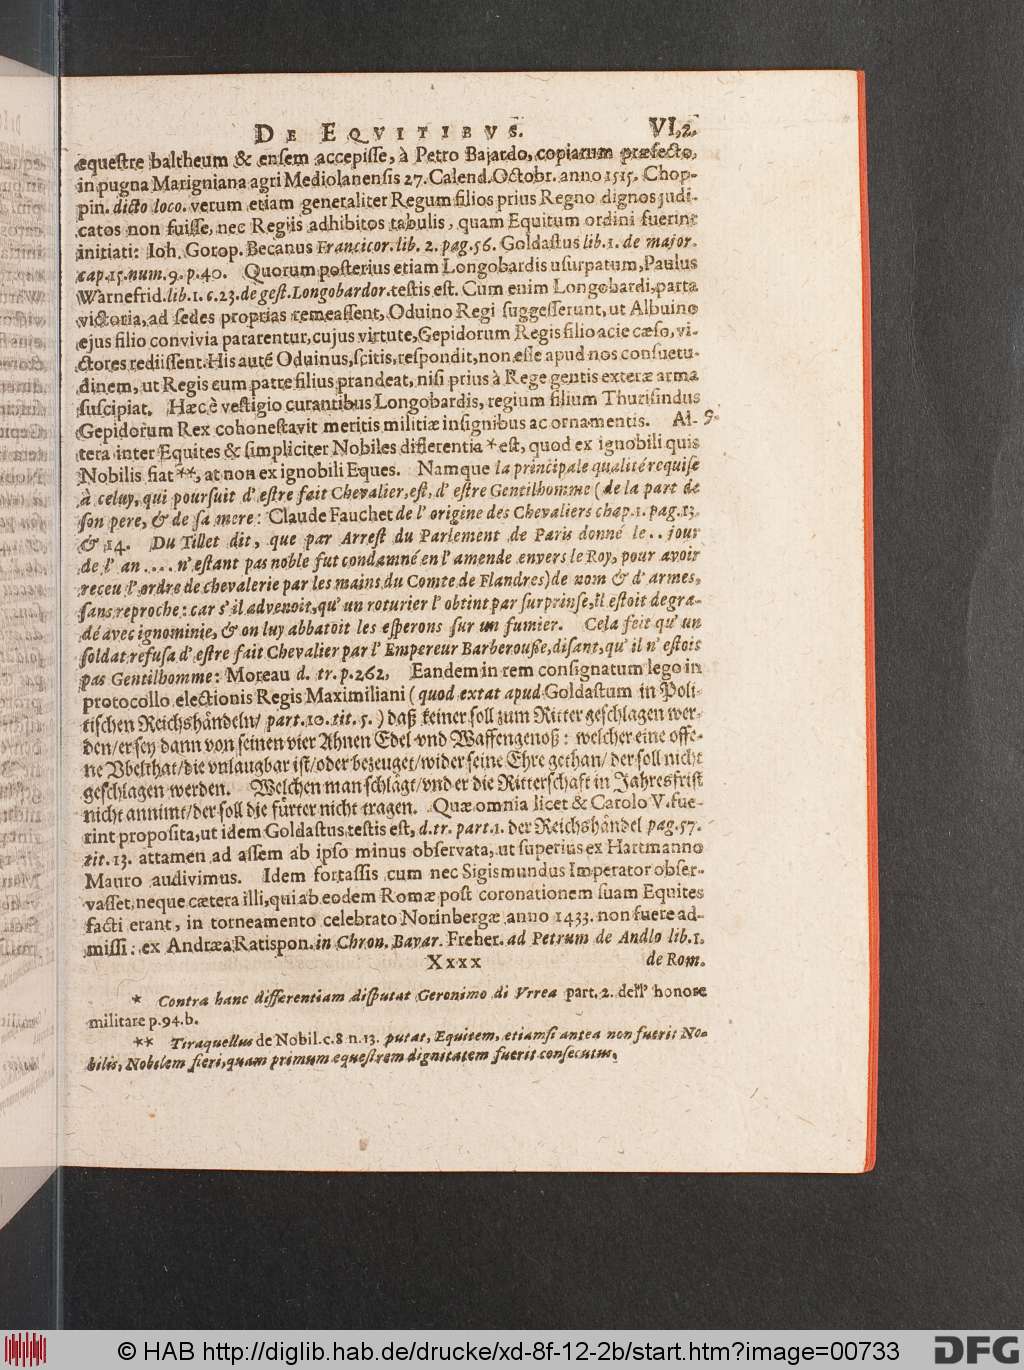 DE EQVITIBVS. VI,2.
equeſtre baltheum & enſem accepiſſe, à Petro Bajardo, copiarum præfecto,
in pugna Marigniana agri Mediolanenſis 27. Calend. Octobr. anno 1515. Chop-
pin. dicto loco. verum etiam generaliter Regum filios prius Regno dignos judi-
catos non fuiſſe, nec Regiis adhibitos tabulis, quam Equitum ordini fuerint
initiati: Ioh. Gorop. Becanus Francicor. lib. 2. pag. 56. Goldaſtus lib. 1. de major.
cap. 15. num. 9. p. 40. Quorum poſterius etiam Longobardis uſurpatum, Paulus
Warnefrid. lib. 1. c. 23. de geſt. Longobardor. teſtis eſt. Cum enim Longobardi, parta
victoria, ad ſedes proprias remeaſſent, Oduino Regi ſuggeſſerunt, ut Albuino
ejus filio convivia pararentur, cujus virtute, Gepidorum Regis filio acie cæſo, vi-
ctores rediiſſent. His auté Oduinus, ſcitis, reſpondit, non eſſe apud nos conſuetu-
dinem, ut Regis eum patre filius prandeat, niſi prius à Rege gentis exteræ arma
ſuſcipiat. Hæc è veſtigio curantibus Longobardis, regium filium Thuriſindus
Gepidorum Rex cohoneſtavit meritis militiæ inſignibus ac ornamentis. Al- 9.
tera inter Equites & ſimpliciter Nobiles differentia * eſt, quod ex ignobili quis
Nobilis fiat **, at non ex ignobili Eques. Namque la principale qualité requiſe
à celuy, qui pourſuit d' eſtre fait Chevalier, eſt, d' eſtre Gentilhomme ( de la part de
ſon pere, & de ſa mere: Claude Fauchet de l' origine des Chevaliers chap. 1. pag. 13.
& 14. Du Tillet dit, que par Arreſt du Parlement de Paris donné le .. jour
de l' an .... n'eſtant pas noble fut condamné en l' amende envers le Roy, pour avoir
receu l' ordre de chevalerie par les mains du Comte de Flandres) de nom & d' armes,
ſans reproche: car s' il advenoit, qu' un roturier l' obtint par ſurprinſe, il eſtoit degra-
dé avec ignominie, & on luy abbatoit les eſperons ſur un fumier. Cela feit qu' un
ſoldat refuſa d' eſtre fait Chevalier par l' Empereur Barberouſſe, diſant, qu' il n' eſtoit
pas Gentilhomme: Moreau d. tr. p. 262, Eandem in rem conſignatum lego in
protocollo electionis Regis Maximiliani ( quod extat apud Goldaſtum in Poli-
tiſchen Reichshändeln/ part. 10. tit. 5. ) daß keiner ſoll zum Ritter geſchlagen wer-
den/ er ſey dann von ſeinen vier Ahnen Edel vnd Waffengenoß: welcher eine offe-
ne Vbelthat/ die vnlaugbar iſt/ oder bezeuget/ wider ſeine Ehre gethan/ der ſoll nicht
geſchlagen werden. Welchen man ſchlägt/ vnd er die Ritterſchaft in Jahresfriſt
nicht annimt/ der ſoll die fürter nicht tragen. Quæ omnia licet & Carolo V. fue-
rint propoſita, ut idem Goldaſtus teſtis eſt, d. tr. part. 1. der Reichshändel pag. 57.
tit. 13. attamen ad aſſem ab ipſo minus obſervata, ut ſuperius ex Hartmanno
Mauro audivimus. Idem fortaſſis cum nec Sigismundus Imperator obſer-
vaſſet, neque cætera illi, qui ab eodem Romæ poſt coronationem ſuam Equites
facti erant, in torneamento celebrato Norinbergæ anno 1433. non fuere ad-
miſſi: ex Andræa Ratispon. in Chron. Bavar. Freher. ad Petrum de Andlo lib. 1.
Xxxx de Rom.
* Contra hanc differentiam diſputat Geronimo di Vrrea part. 2. dell' honore
militare p. 94. b.
** Tiraquellus de Nobil. c. 8 n. 13. putat, Equitem, etiamſi antea non fuerit No-
bilis, Nobilem fieri, quam primum equeſtrem dignitatem fuerit conſecutus.
© HAB http://diglib.hab.de/drucke/xd-8f-12-2b/start.htm?image=00733
DFG